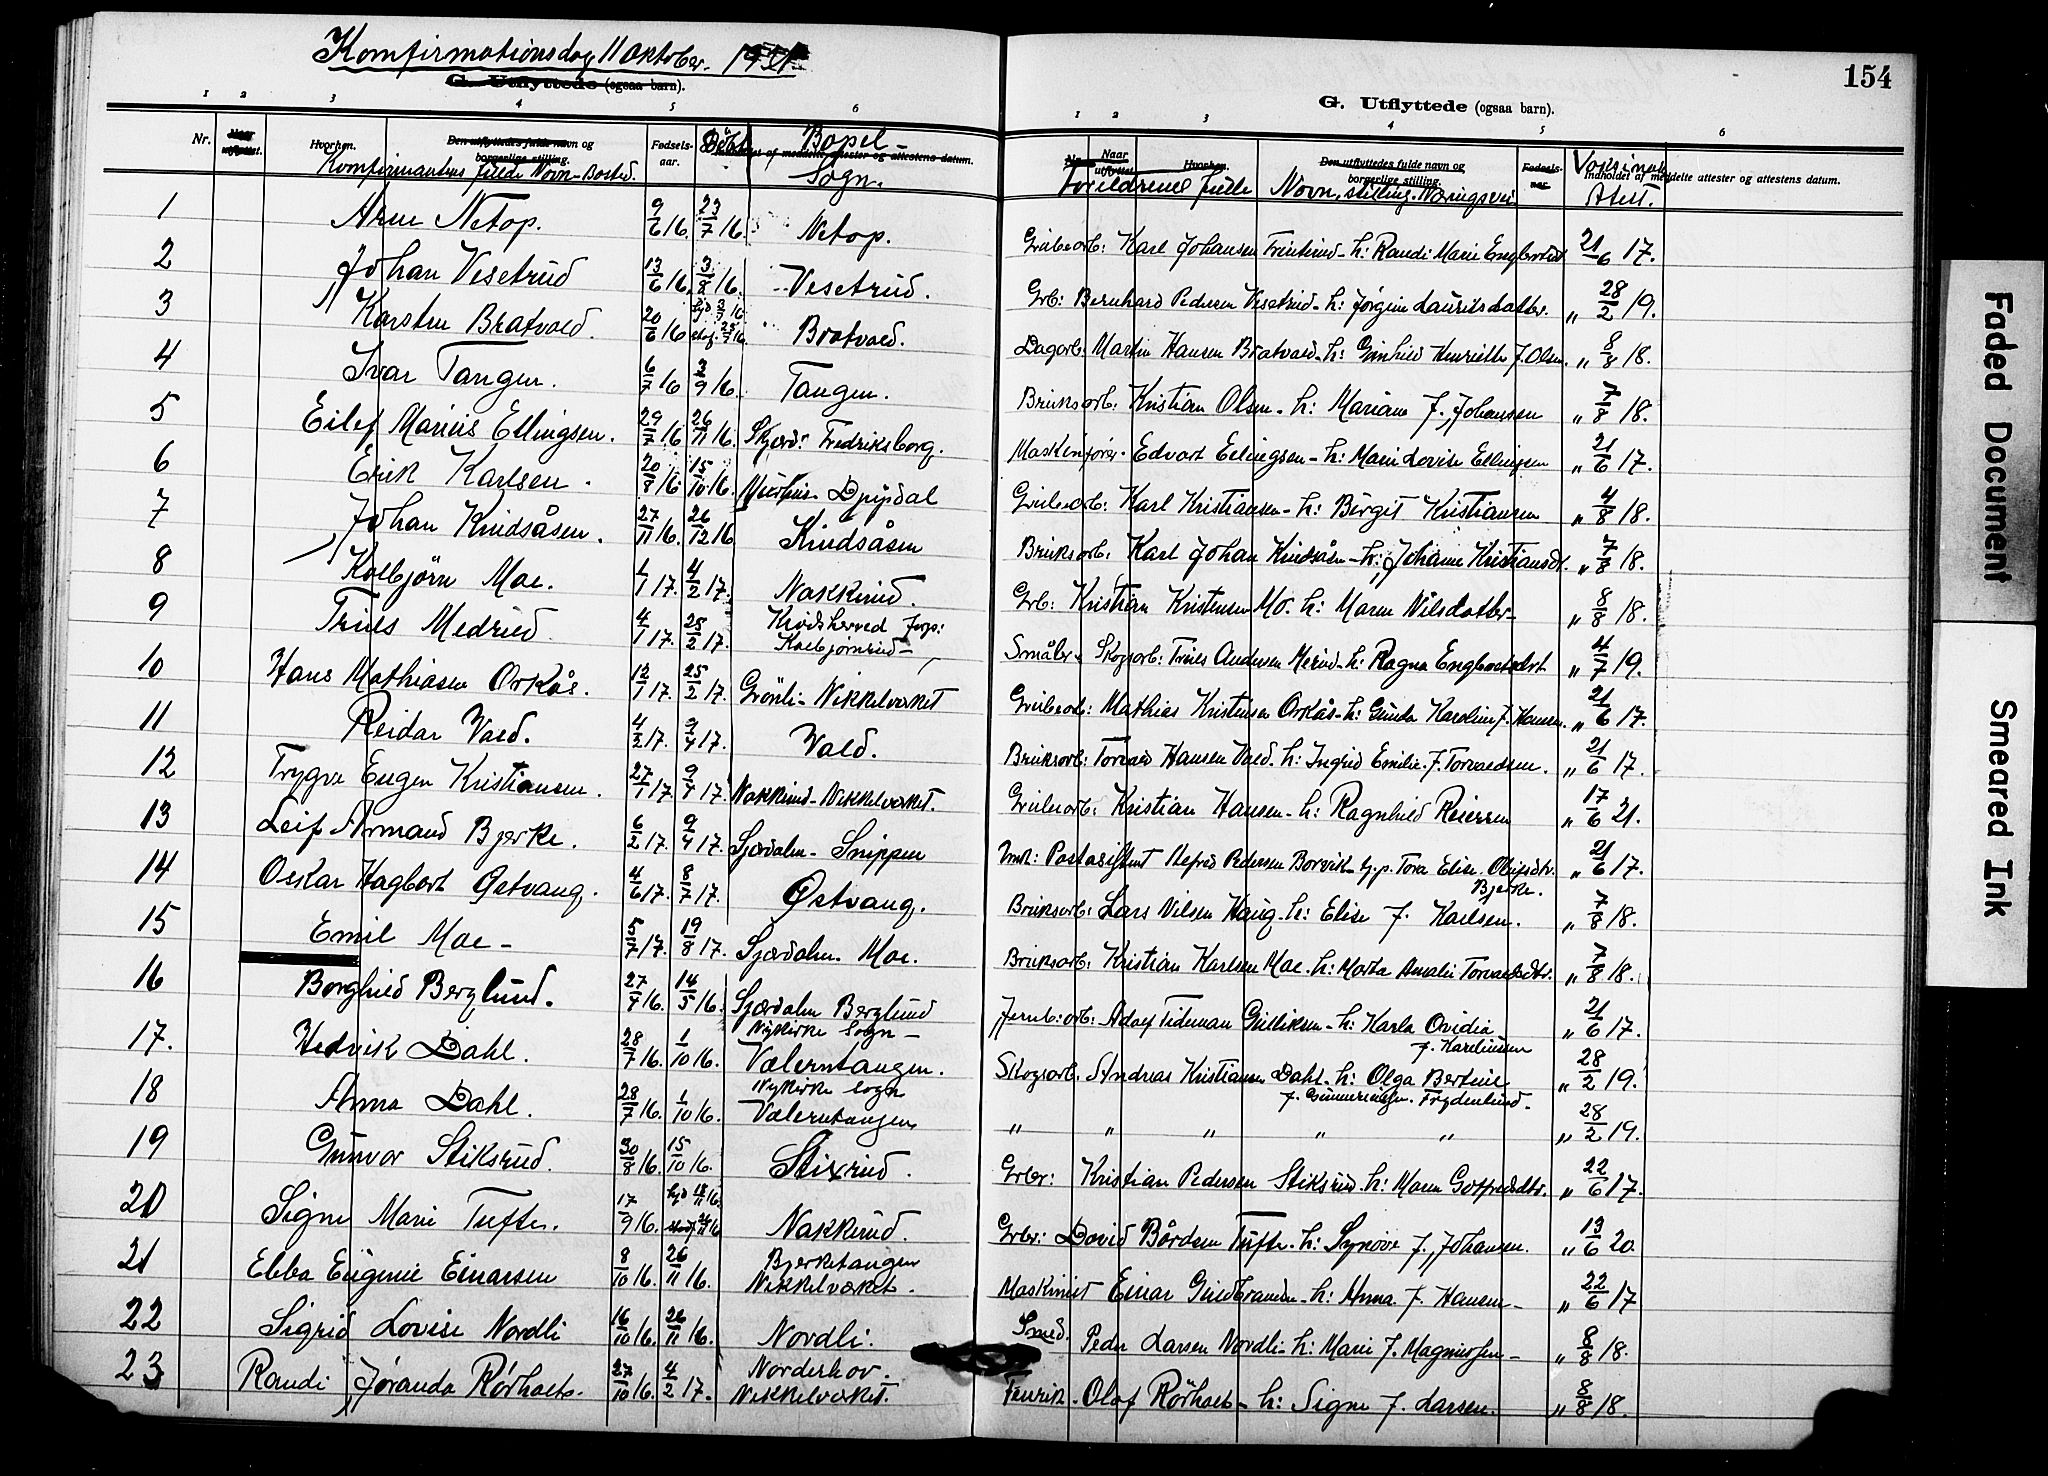 Konfirmationsdag 11 Oktober. 1931
G. Utflyttede (ogsaa barn).
1 2 3 4 5 6
Nr. Naar utflyttet. Hvorhen. Den utflyttedes fulde navn og borgerlige stilling. Fødsels-aar. Døbt Bopel - Sogn.
Konfirmantens fulde Navn - Bosted.
1 Arne Netop. 9/6 16. 23/7 16. Netop.
2 Johan Vesetrud 13/6 16. 3/8 16. Vesetrud.
3 Karsten Bratvold. 20/6 16 Bratvold.
4 Ivar Tangen. 6/7 16 3/9 16. Tangen.
5 Eilef Marius Ellingsen. 29/7 16 26/11 16. Skjærd: Fredriksborg.
6 Erik Karlsen. 20/8 16. 15/10 16. Dypdal
7 Johan Knudsåsen. 27/11 16. 26/12 16 Knudsåsen
8 Kolbjörn Moe. 1/1 17. 4/2 17. Nakkerud.
9 Truls Medrud. 4/1 17. 25/2 17. Krødsherred
Kolbjørnrud -
10 Hans Mathiasen Orkås. 12/1 17. 25/2 17. Grönli - Nikkelverket
11 Reidar Vold. 4/2 17. 9/4 17. Vold.
12 Trygve Eugen Kristiansen. 27/1 17. 9/4 17. Nakkerud - Nikkelverket.
13 Leif Armand Bjerke. 6/2 17. 9/4 17. Sjørdalen - Snippen
14 Oskar Hagbart Østvang. 4/6 17. 8/7 17. Østvang.
15 Emil Moe - 5/7 17. 19/8 17. Sjørdalen Moe.
16 Borghild Berglund. 27/4 16. 14/5 16. Sjørdalen Berglund
17. Hedvik Dahl. 28/7 16. 1/10 16. Nykirke Sogn -
Vælerntangen.
18 Anna Dahl. 28/7 16. 1/10 16. Nykirke Sogn
Vælerntangen
19 Gunvor Stiksrud. 30/8 16. 15/10 16. Stixrud.
20 Signe Marie Tufte. 17/9 16. Nakkerud.
21 Ebba Eugenie Einarsen 8/10 16. 26/11 16. Bjerketangen
Nikkelverket.
22 Sigrid Lovise Nordli 16/10 16. 26/11 16. Nordli.
23 Randi Jøranda Rørholt. 27/10 16. 4/2 17. Norderhov.
Nikkelverket.
154
G. Utflyttede (ogsaa barn).
1 2 3 4 5 6
Nr. Naar utflyttet. Hvorhen. Den utflyttedes fulde navn og borgerlige stilling. Fødsels-aar. Indholdet af meddelte attester og attestens datum.
Foreldrenes fulle Navn, stilling. Næringsvei Attest.
Grubearb: Karl Johansen - h: Randi Marie Engbretsdt. 21/6 17.
Grb: Bernhard Pedersen Vesetrud - h: Jørgine Lauritsdatter. „ 28/2 19.
Dagarb. Martin Hansen Bratvold - h: Gunhild Henriette f. Olsen. „ 8/8 18.
Bruksarb: Kristian Olsen - h: Mariane f. Johansen „ 7/8 18.
Maskinfører. Edvart Ellingsen - h: Marie Lovise Ellingsen „ 21/6 17.
Grubearb: Karl Kristiansen - h: Birgit Kristiansen „ 4/8 18.
Bruksarb: Karl Johan Knudsåsen - h: Johanne Kristiansdt. „ 7/8 18.
Grb: Kristian Kristensen Mo. h: Maren Nilsdatter - „ 8/8 18.
Småbr. Skogsarb: Truls Andersen Merud - h: Ragna Engbretsdt „ 4/7 19.
Grubearb: Mathias Kristensen Orkås - h: Gunda Karoline f. Hansen. „ 21/6 17.
Bruksarb: Torvald Hansen Vold. h: Ingrid Emilie f. Torvaldsen. „ 21/6 17.
Grubearb: Kristian Hansen - h: Ragnhild Reiersen „ 17/6 21.
Postasistent Alfred Pedersen Borvik Tora Elise Olufsdtr. „ 21/6 17.
Bjerke.
Bruksarb: Lars Nilsen Haug - h: Elise f. Karlsen. „ 7/8 18.
Bruksarb: Kristian Karlsen Moe - h: Marta Amalie Torvaldsdtr. „ 7/8 18.
Jernb: arb: Adolf Tideman Gulliksen - h: Karla Ovidia „ 21/6 17.
f. Karelinssen
Skogsarb. Andreas Kristiansen Dahl - h: Olga Bertine „ 28/2 19.
Frydenlund.
„ „ „ „ „ „ 28/2 19.
Grbr: Kristian Pedersen Stiksrud. h: Maren Gotfredsdtr. „ 22/6 17.
Grbr: David Bårdsen Tufte. h: Synøve f. Johansen. „ 13/6 20.
Maskinist Einar Guldbrandsen - h: Anna f. Hansen - „ 22/6 17
Smed. Peder Larsen Nordli - h: Marie f. Magnussen - „ 8/8 18.
Olaf Rörholt - h: Signe f. Larsen. „ 8/8 18.
Faded Document
Smeared Ink